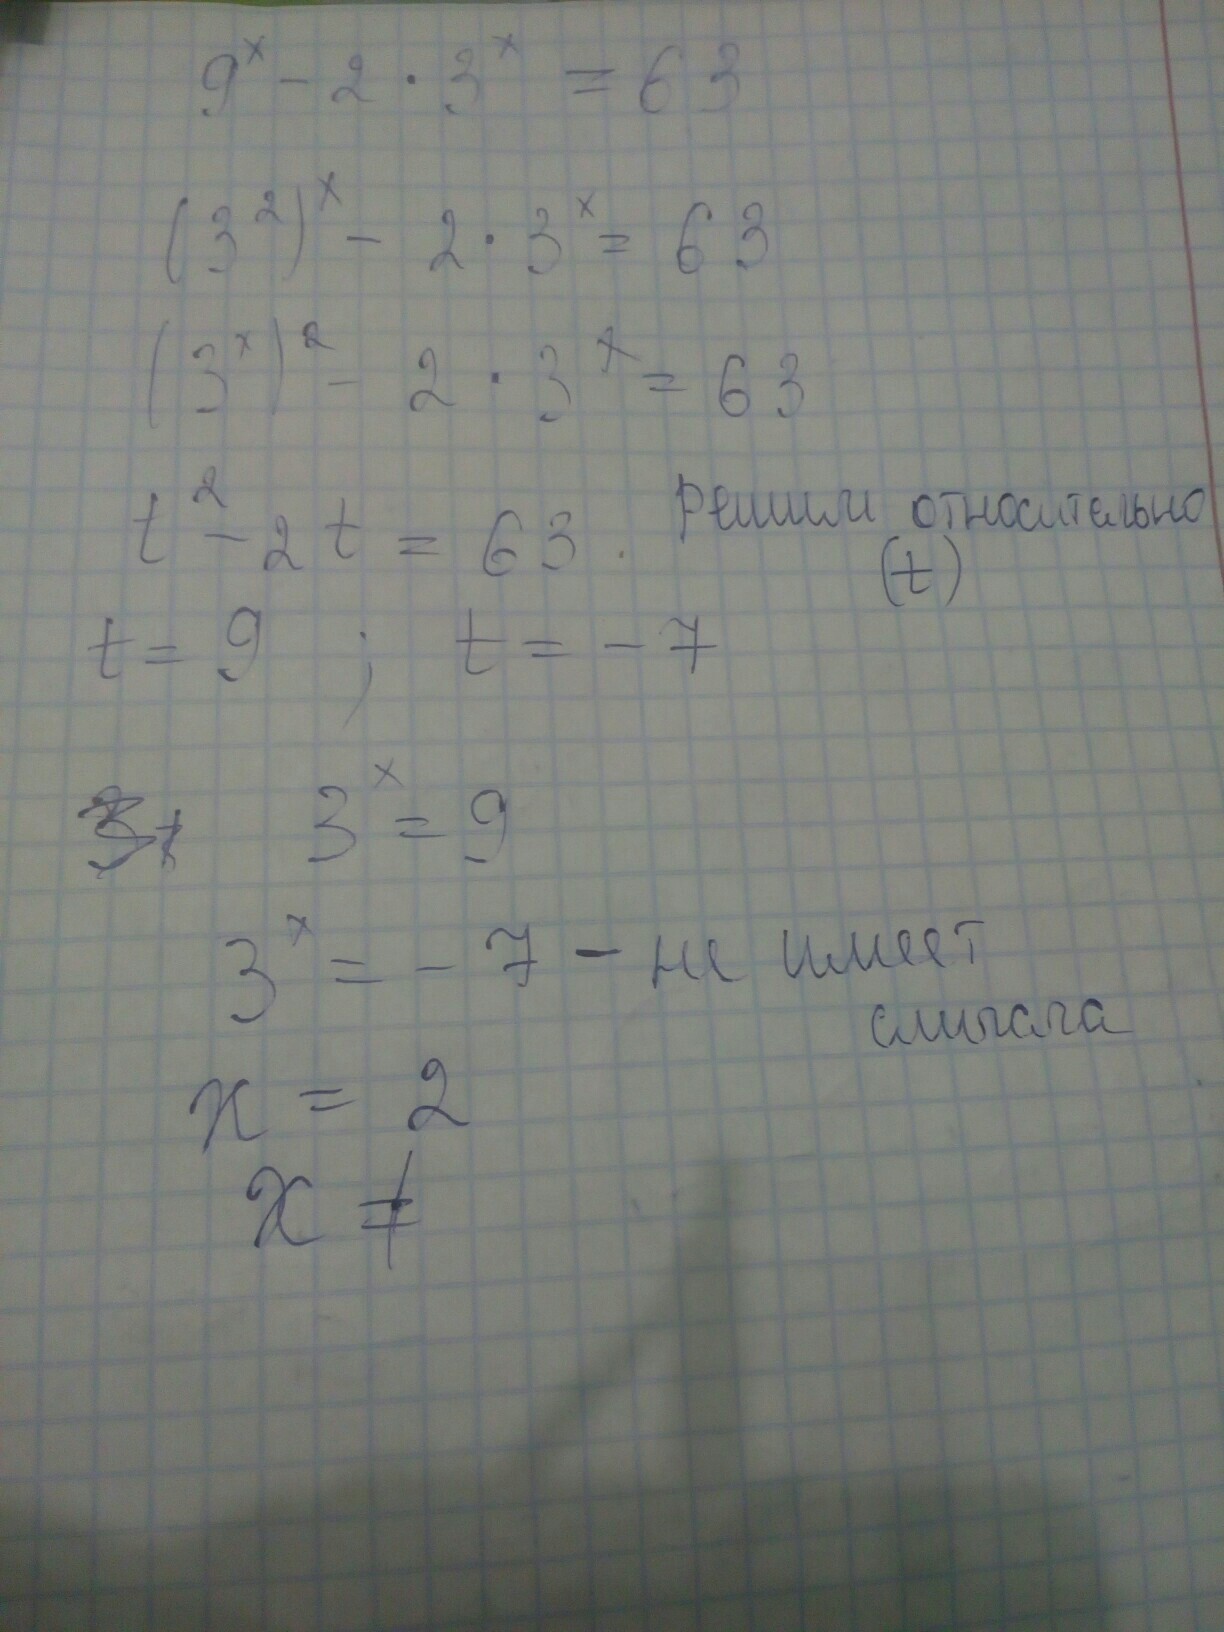 9ˣ - 2 · 3ˣ = 63
(3²)ˣ - 2 · 3ˣ = 63
(3ˣ)² - 2 · 3ˣ = 63
t² - 2t = 63. решили относительно (t)
t = 9 ; t = -7
3ˣ = 9
3ˣ = -7 - не имеет
смысла
x = 2
x ≠